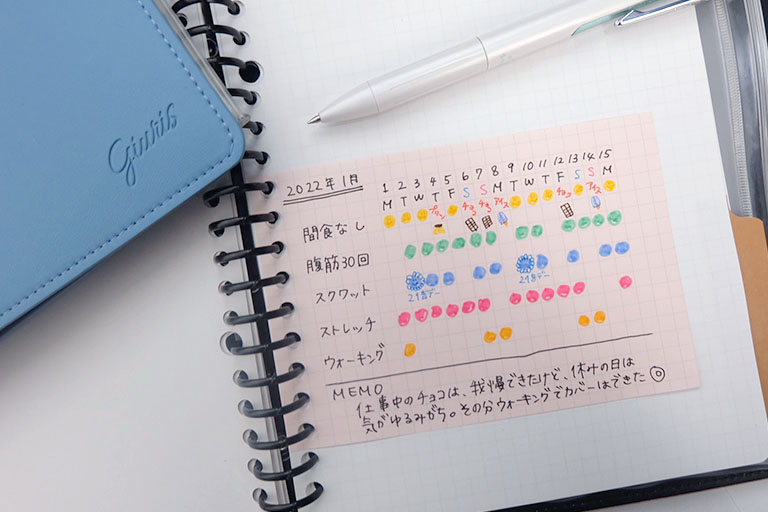 Giuris
2022年1月
1 2 3 4 5 6 7 8 9 10 11 12 13 14 15
M T W T F S S M T W T F S S M
間食なし プリン チョコ チョコ アイス チョコ アイス
腹筋30回
スクワット 2倍デー 2倍デー
ストレッチ
ウォーキング
MEMO
仕事中のチョコは、我慢できたけど、休みの日は
気がゆるみがち。その分ウォーキングでカバーはできた◎